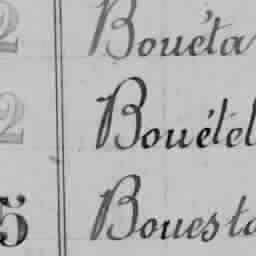 2 Bouéta
2 Bouétél
5 Bouesta